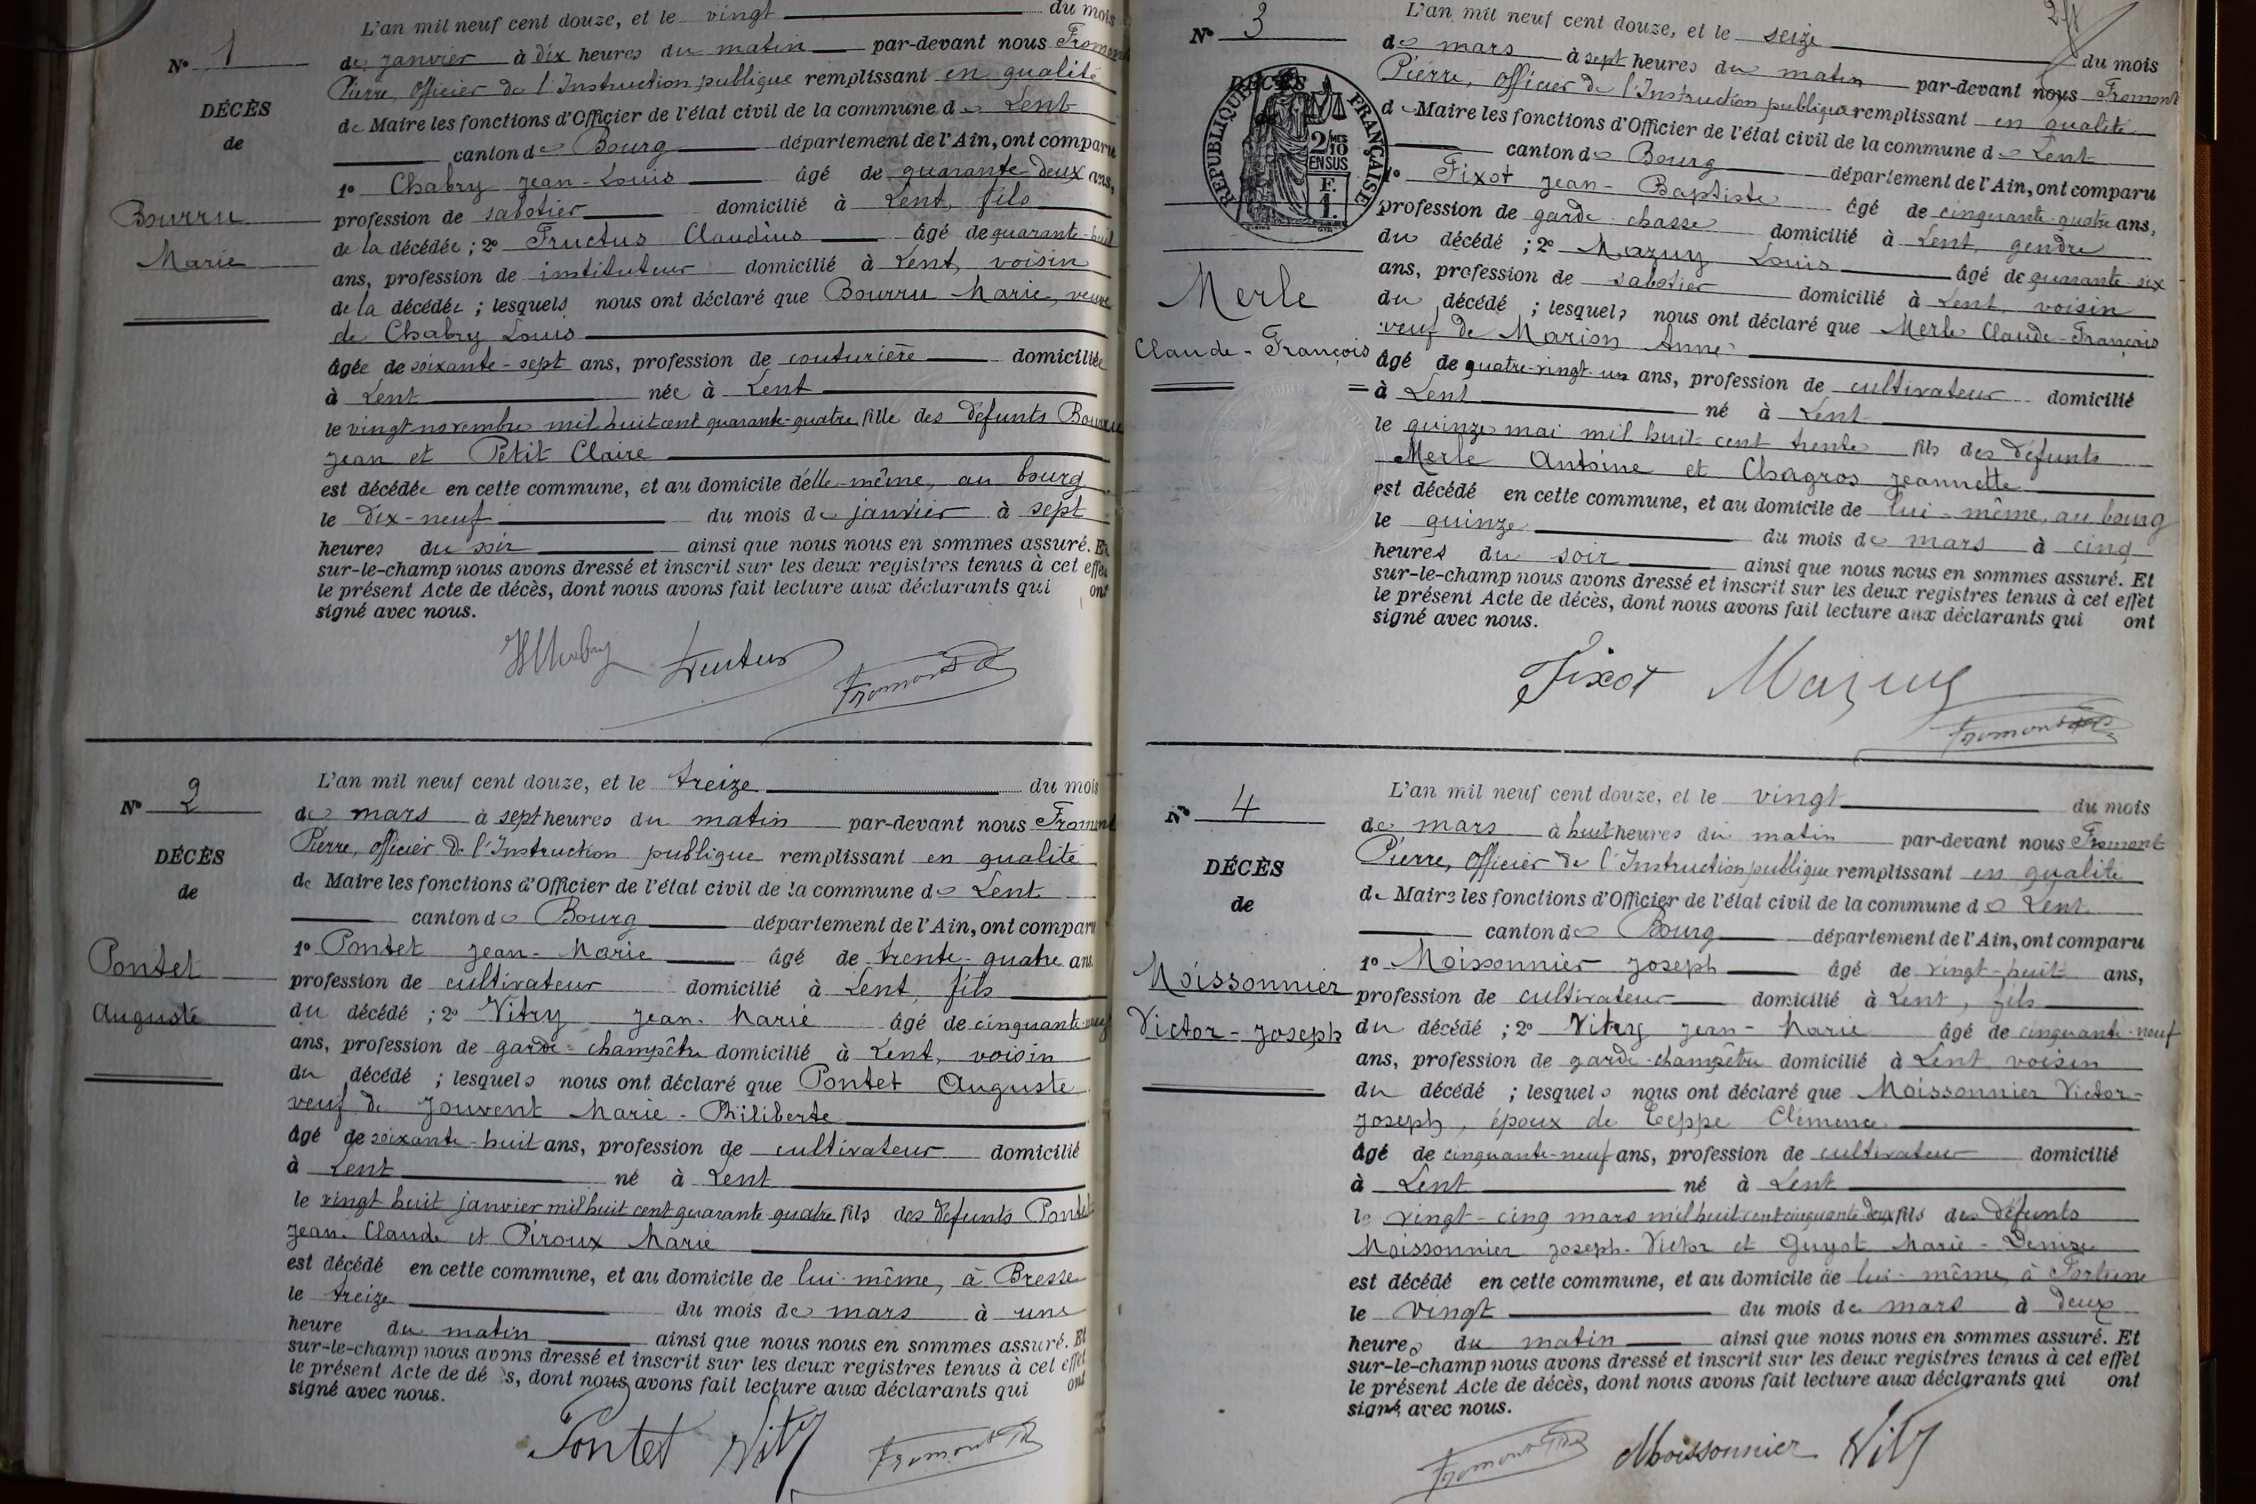 L'an mil neuf cent douze, et le vingt du mois
N° 1
de janvier à dix heures du matin par-devant nous Fromont
Pierre, Officier de l'Instruction publique remplissant en qualité
DÉCÈS
de Maire les fonctions d'Officier de l'état civil de la commune de Lent
de
canton de Bourg département de l'Ain, ont comparu
1° Chabry Jean-Louis âgé de quarante deux ans,
Bourru
profession de sabotier domicilié à Lent, fils
de la décédée ; 2° Fructus Claudius âgé de quarante-huit
Marie
ans, profession de instituteur domicilié à Lent, voisin
de la décédée ; lesquels nous ont déclaré que Bourru Marie, veuve
de Chabry Louis
âgée de soixante-sept ans, profession de couturière domiciliée
à Lent née à Lent
le vingt novembre mil huit cent quarante-quatre fille des défunts Bourru
Jean et Petit Claire
est décédée en cette commune, et au domicile d'elle-même, au bourg
le dix-neuf du mois de janvier à sept
heures du soir ainsi que nous nous en sommes assuré. Et
sur-le-champ nous avons dressé et inscrit sur les deux registres tenus à cet effet
le présent Acte de décès, dont nous avons fait lecture aux déclarants qui ont
signé avec nous.
Chabry Fructus Fromont
L'an mil neuf cent douze, et le treize du mois
N° 2
de mars à sept heures du matin par-devant nous Fromont
Pierre, Officier de l'Instruction publique remplissant en qualité
DÉCÈS
de Maire les fonctions d'Officier de l'état civil de la commune de Lent
de
canton de Bourg département de l'Ain, ont comparu
1° Pontet Jean-Marie âgé de trente-quatre ans
Pontet
profession de cultivateur domicilié à Lent, fils
Auguste
du décédé ; 2° Vitry Jean-Marie âgé de cinquante-neuf
ans, profession de garde-champêtre domicilié à Lent, voisin
du décédé ; lesquels nous ont déclaré que Pontet Auguste
veuf de Jouvent Marie-Philiberte
âgé de soixante-huit ans, profession de cultivateur domicilié
à Lent né à Lent
le vingt huit janvier mil huit cent quarante quatre fils des défunts Pontet
Jean-Claude et Piroux Marie
est décédé en cette commune, et au domicile de lui-même, à Bresse
le treize du mois de mars à une
heure du matin ainsi que nous nous en sommes assuré. Et
sur-le-champ nous avons dressé et inscrit sur les deux registres tenus à cet effet
le présent Acte de dé s, dont nous avons fait lecture aux déclarants qui ont
signé avec nous.
Pontet Vitry Fromont
L'an mil neuf cent douze, et le seize du mois
N° 3
de mars à sept heures du matin par-devant nous Fromont
Pierre, Officier de l'Instruction publique remplissant en qualité
DÉCÈS
RÉPUBLIQUE FRANÇAISE
2/10 MES EN SUS
F. 1.
de Maire les fonctions d'Officier de l'état civil de la commune de Lent
canton de Bourg département de l'Ain, ont comparu
1° Fixot Jean-Baptiste âgé de cinquante-quatre ans,
profession de garde-chasse domicilié à Lent, gendre
du décédé ; 2° Mazuy Louis âgé de quarante-six
Merle
ans, profession de sabotier domicilié à Lent, voisin
du décédé ; lesquels nous ont déclaré que Merle Claude-François
Claude-François
veuf de Marion Anne
âgé de quatre-vingt-un ans, profession de cultivateur domicilié
à Lent né à Lent
le quinze mai mil huit cent trente fils des défunts
Merle Antoine et Chagros Jeannette
est décédé en cette commune, et au domicile de lui-même, au bourg
le quinze du mois de mars à cinq
heures du soir ainsi que nous nous en sommes assuré. Et
sur-le-champ nous avons dressé et inscrit sur les deux registres tenus à cet effet
le présent Acte de décès, dont nous avons fait lecture aux déclarants qui ont
signé avec nous.
Fixot Mazuy Fromont
L'an mil neuf cent douze, et le vingt du mois
N° 4
de mars à huit heures du matin par-devant nous Fromont
Pierre, Officier de l'Instruction publique remplissant en qualité
DÉCÈS
de Maire les fonctions d'Officier de l'état civil de la commune de Lent
de
canton de Bourg département de l'Ain, ont comparu
1° Moissonnier Joseph âgé de vingt-huit ans,
Moissonnier
profession de cultivateur domicilié à Lent, fils
Victor-Joseph
du décédé ; 2° Vitry Jean-Marie âgé de cinquante-neuf
ans, profession de garde-champêtre domicilié à Lent voisin
du décédé ; lesquels nous ont déclaré que Moissonnier Victor-
Joseph, époux de Teppe Clémence
âgé de cinquante-neuf ans, profession de cultivateur domicilié
à Lent né à Lent
le vingt-cinq mars mil huit cent cinquante deux fils des défunts
Moissonnier Joseph-Victor et Guyot Marie-Denise
est décédé en cette commune, et au domicile de lui-même, à Fortune
le vingt du mois de mars à deux
heures du matin ainsi que nous nous en sommes assuré. Et
sur-le-champ nous avons dressé et inscrit sur les deux registres tenus à cet effet
le présent Acte de décès, dont nous avons fait lecture aux déclarants qui ont
signé avec nous.
Fromont Moissonnier Vitry